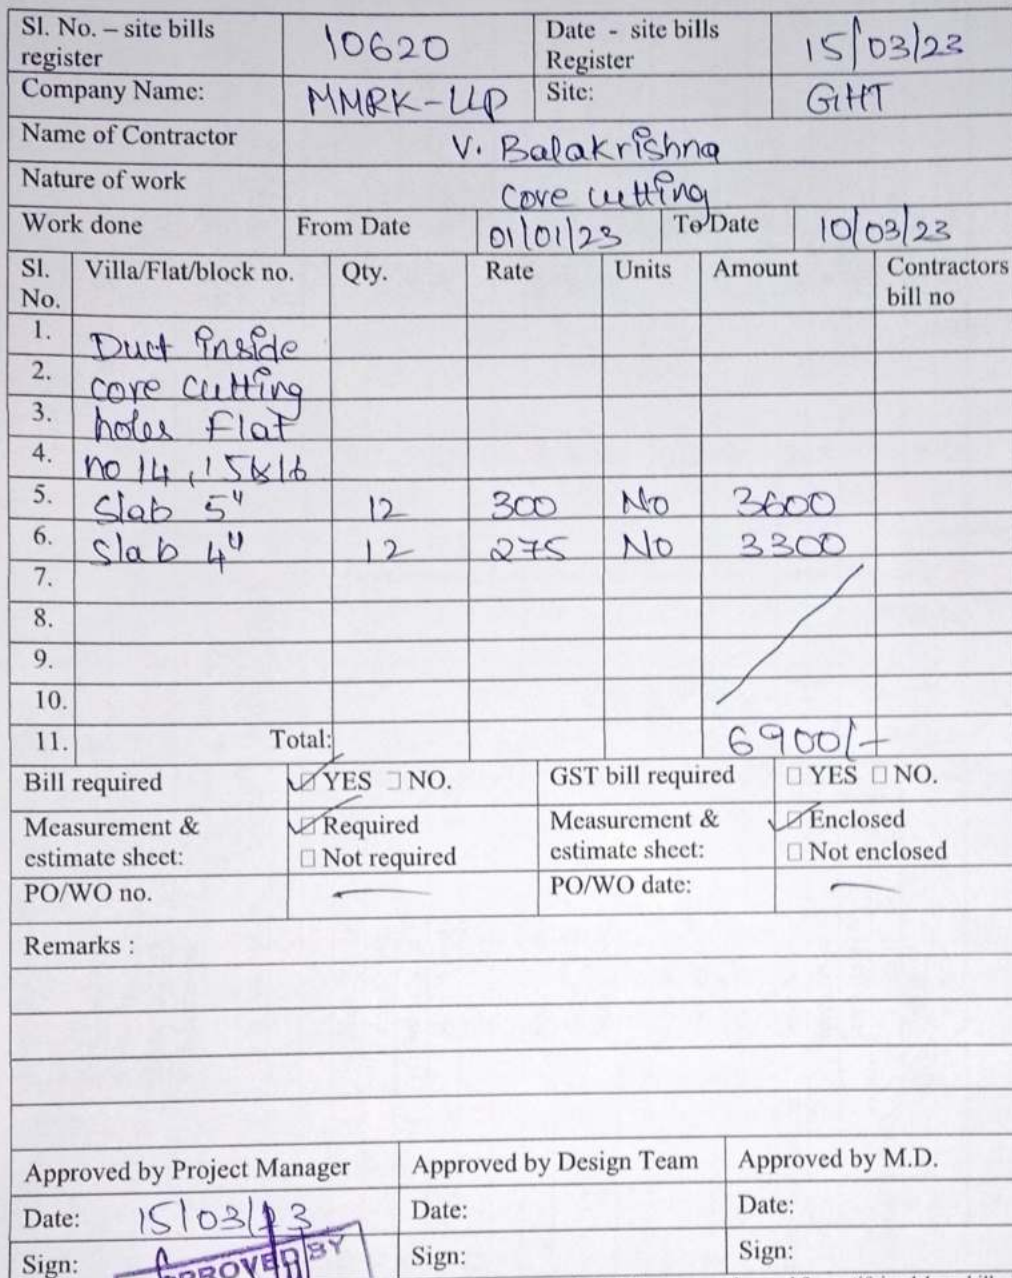 Sl. No. – site bills register 10620 Date - site bills Register 15/03/23
Company Name: MMRK-LLP Site: GHT
Name of Contractor V. Balakrishna
Nature of work core cutting
Work done From Date 01/01/23 To Date 10/03/23
Sl. No. Villa/Flat/block no. Qty. Rate Units Amount Contractors bill no
1. Duct inside
2. core cutting
3. holes Flat
4. no 14, 15&16
5. Slab 5" 12 300 No 3600
6. Slab 4" 12 275 No 3300
7.
8.
9.
10.
11. Total: 6900/-
Bill required ☑ YES ☐ NO. GST bill required ☐ YES ☐ NO.
Measurement & estimate sheet: ☑ Required ☐ Not required Measurement & estimate sheet: ☑ Enclosed ☐ Not enclosed
PO/WO no. — PO/WO date: —
Remarks :
Approved by Project Manager Approved by Design Team Approved by M.D.
Date: 15/03/23 Date: Date:
Sign: APPROVED BY Sign: Sign: